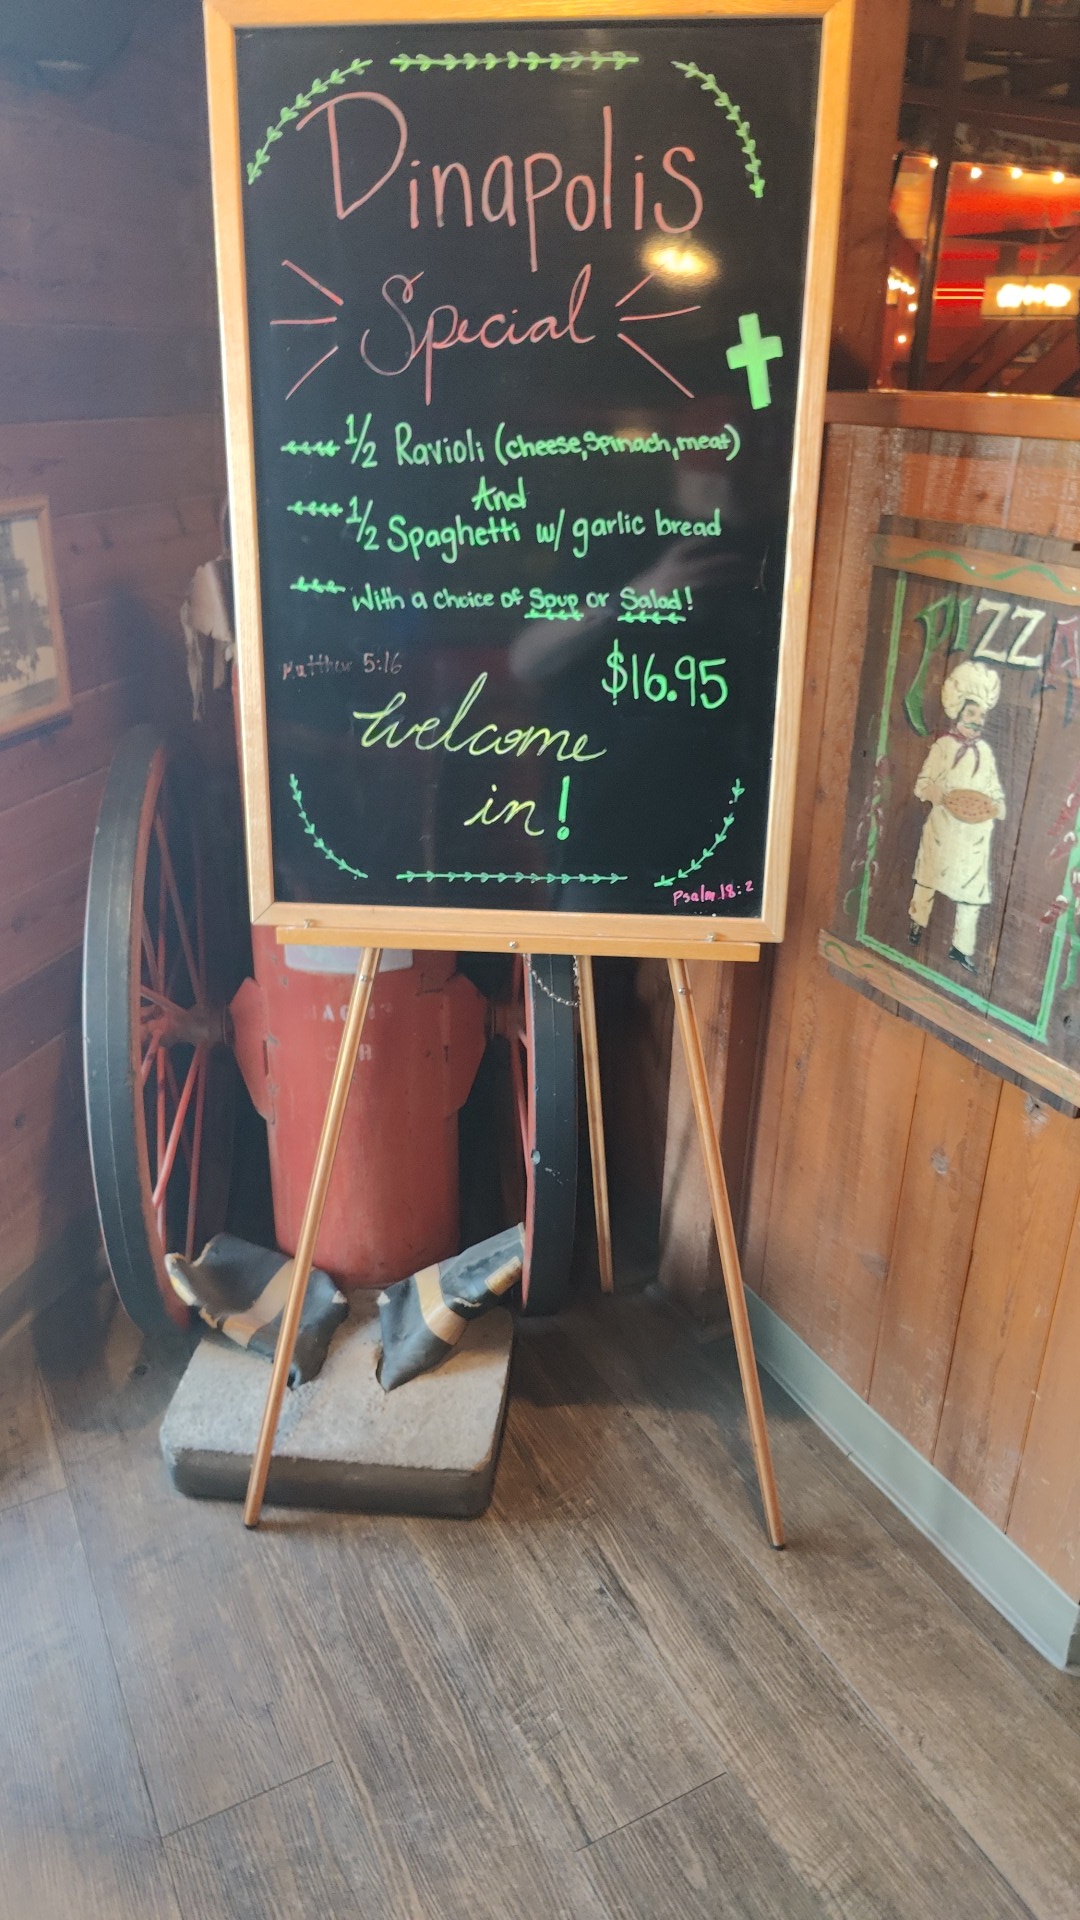 Dinapolis
Special
1/2 Ravioli (cheese, Spinach, meat)
And
1/2 Spaghetti w/ garlic bread
With a choice of Soup or Salad!
$16.95
Matthew 5:16
welcome
in!
Psalm 18:2
PIZZA